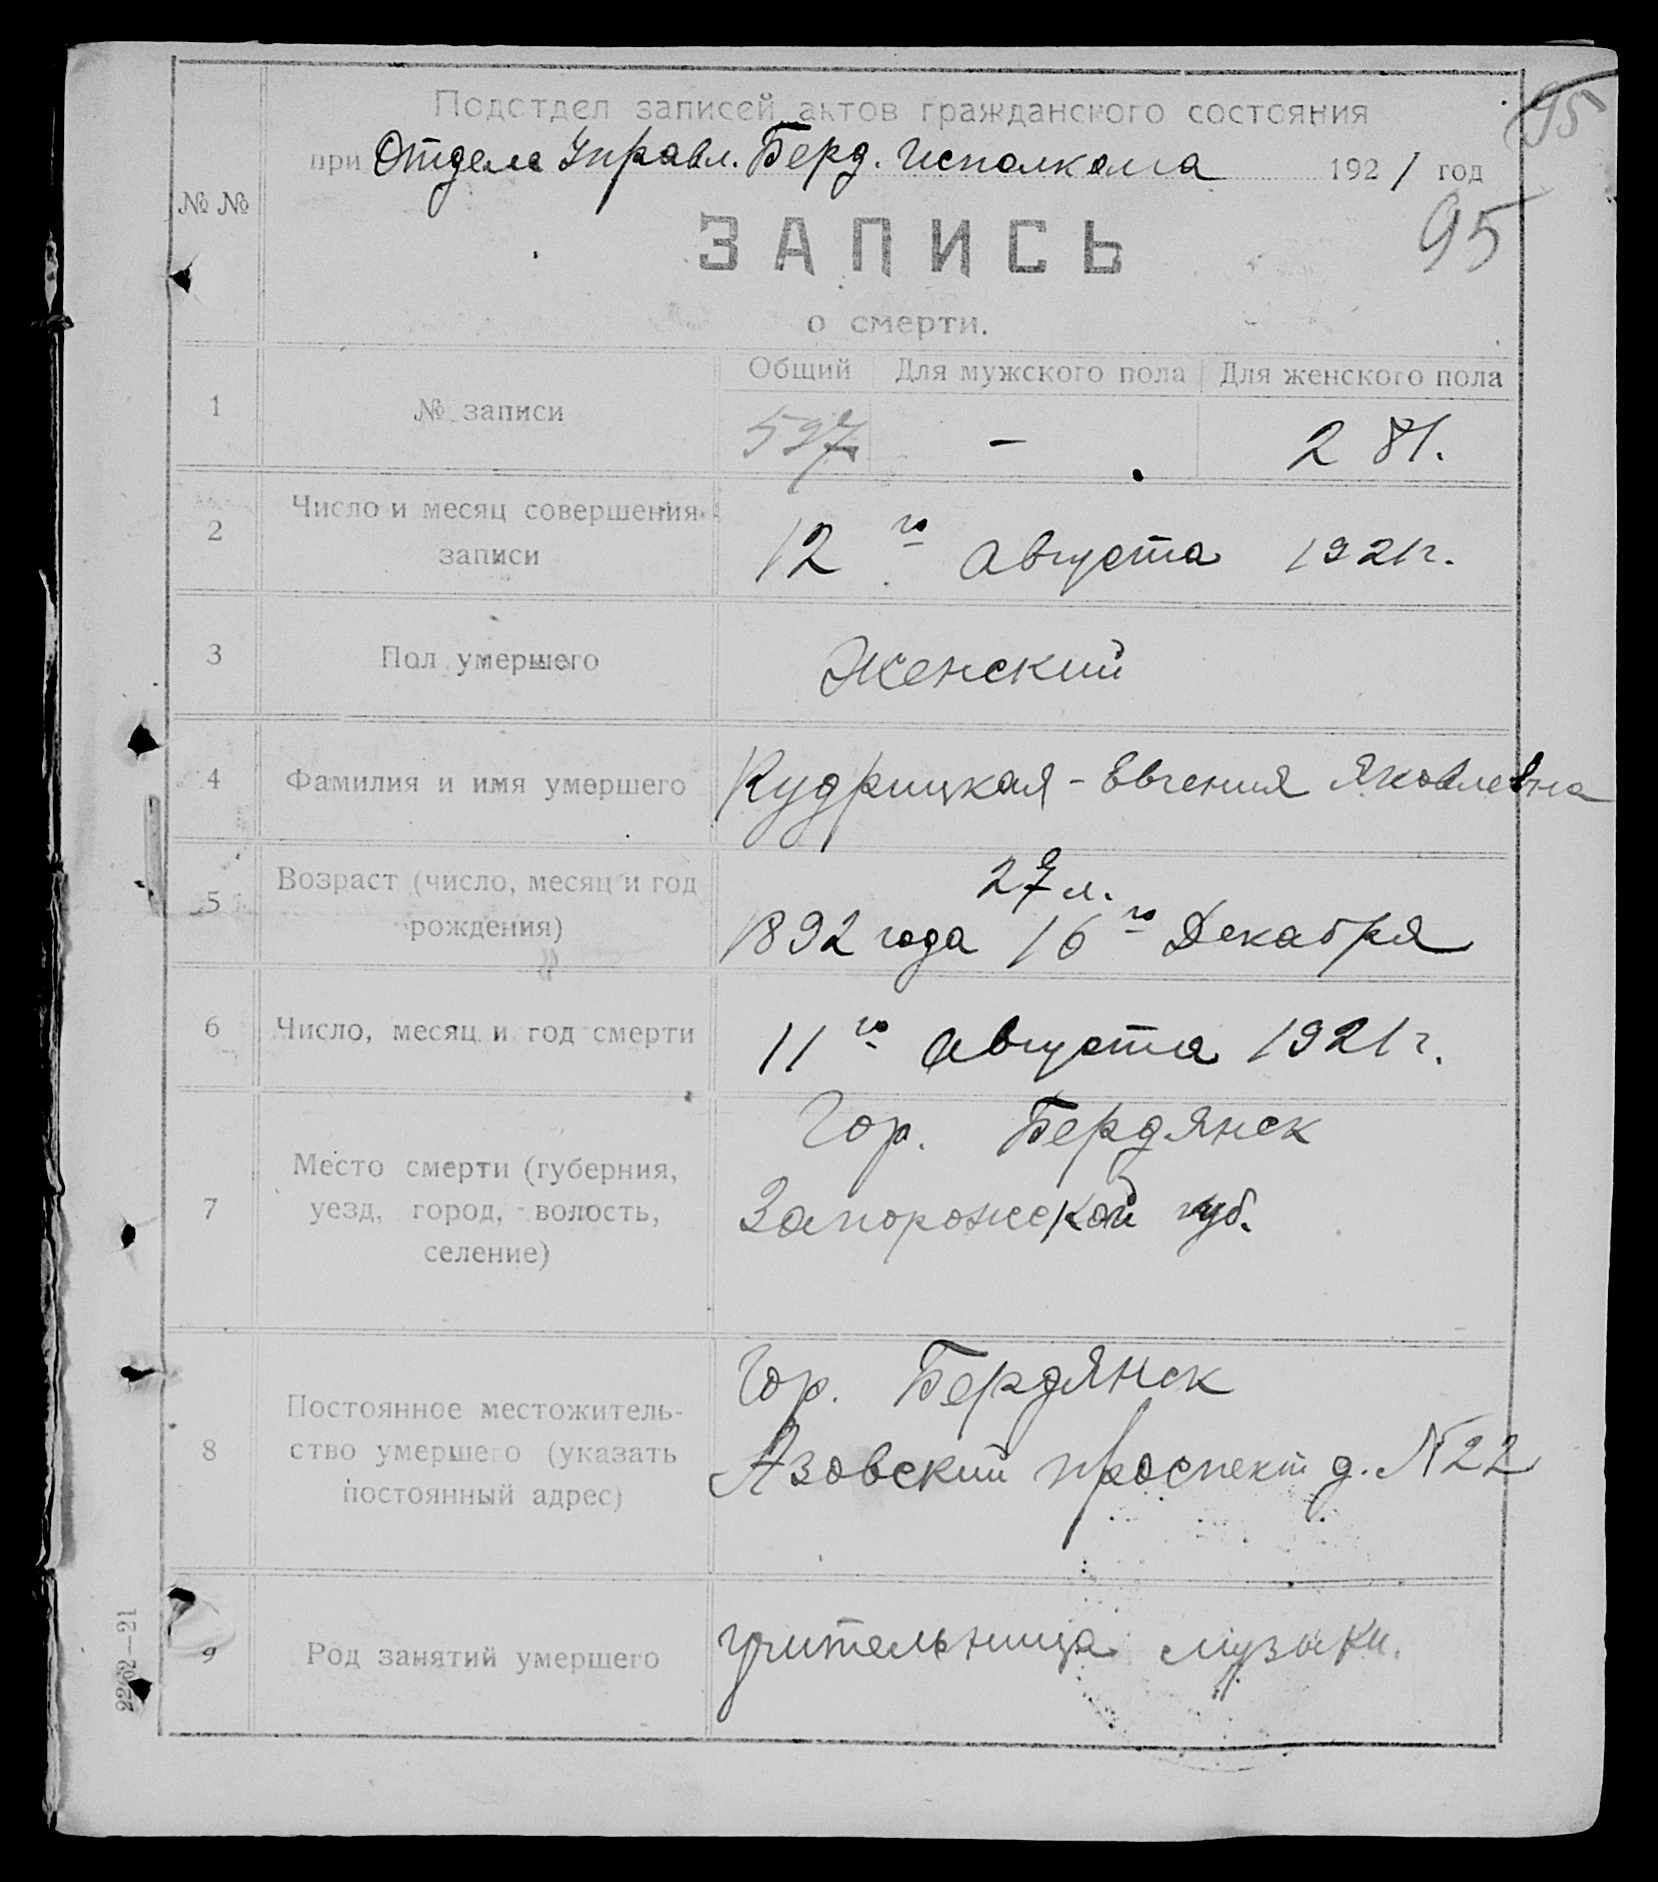 95
Подотдел записей актов гражданского состояния
при Отделе Управл. Берд. Исполкома 1921 год
95
№ №
ЗАПИСЬ
о смерти.
Общий Для мужского пола Для женского пола
1 № записи 527 - 281.
2 Число и месяц совершения записи
12 го Августа 1921 г.
3 Пол умершего Женский
4 Фамилия и имя умершего Кудрицкая - Евгения Яковлевна
5 Возраст (число, месяц и год рождения)
1892 года 16 го Декабря
6 Число, месяц и год смерти 11 го Августа 1921 г.
7 Место смерти (губерния,
уезд, город, волость,
селение)
Гор. Бердянск
Запорожской губ.
8 Постоянное местожитель-
ство умершего (указать
постоянный адрес)
Гор. Бердянск
Азовский проспект д. № 22
9 Род занятий умершего учительница музыки.